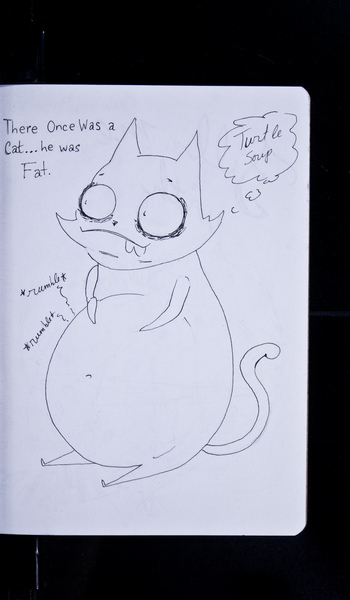 There Once Was a
Cat...he was
Fat.
Turtle
Soup
*rumble*
*rumble*